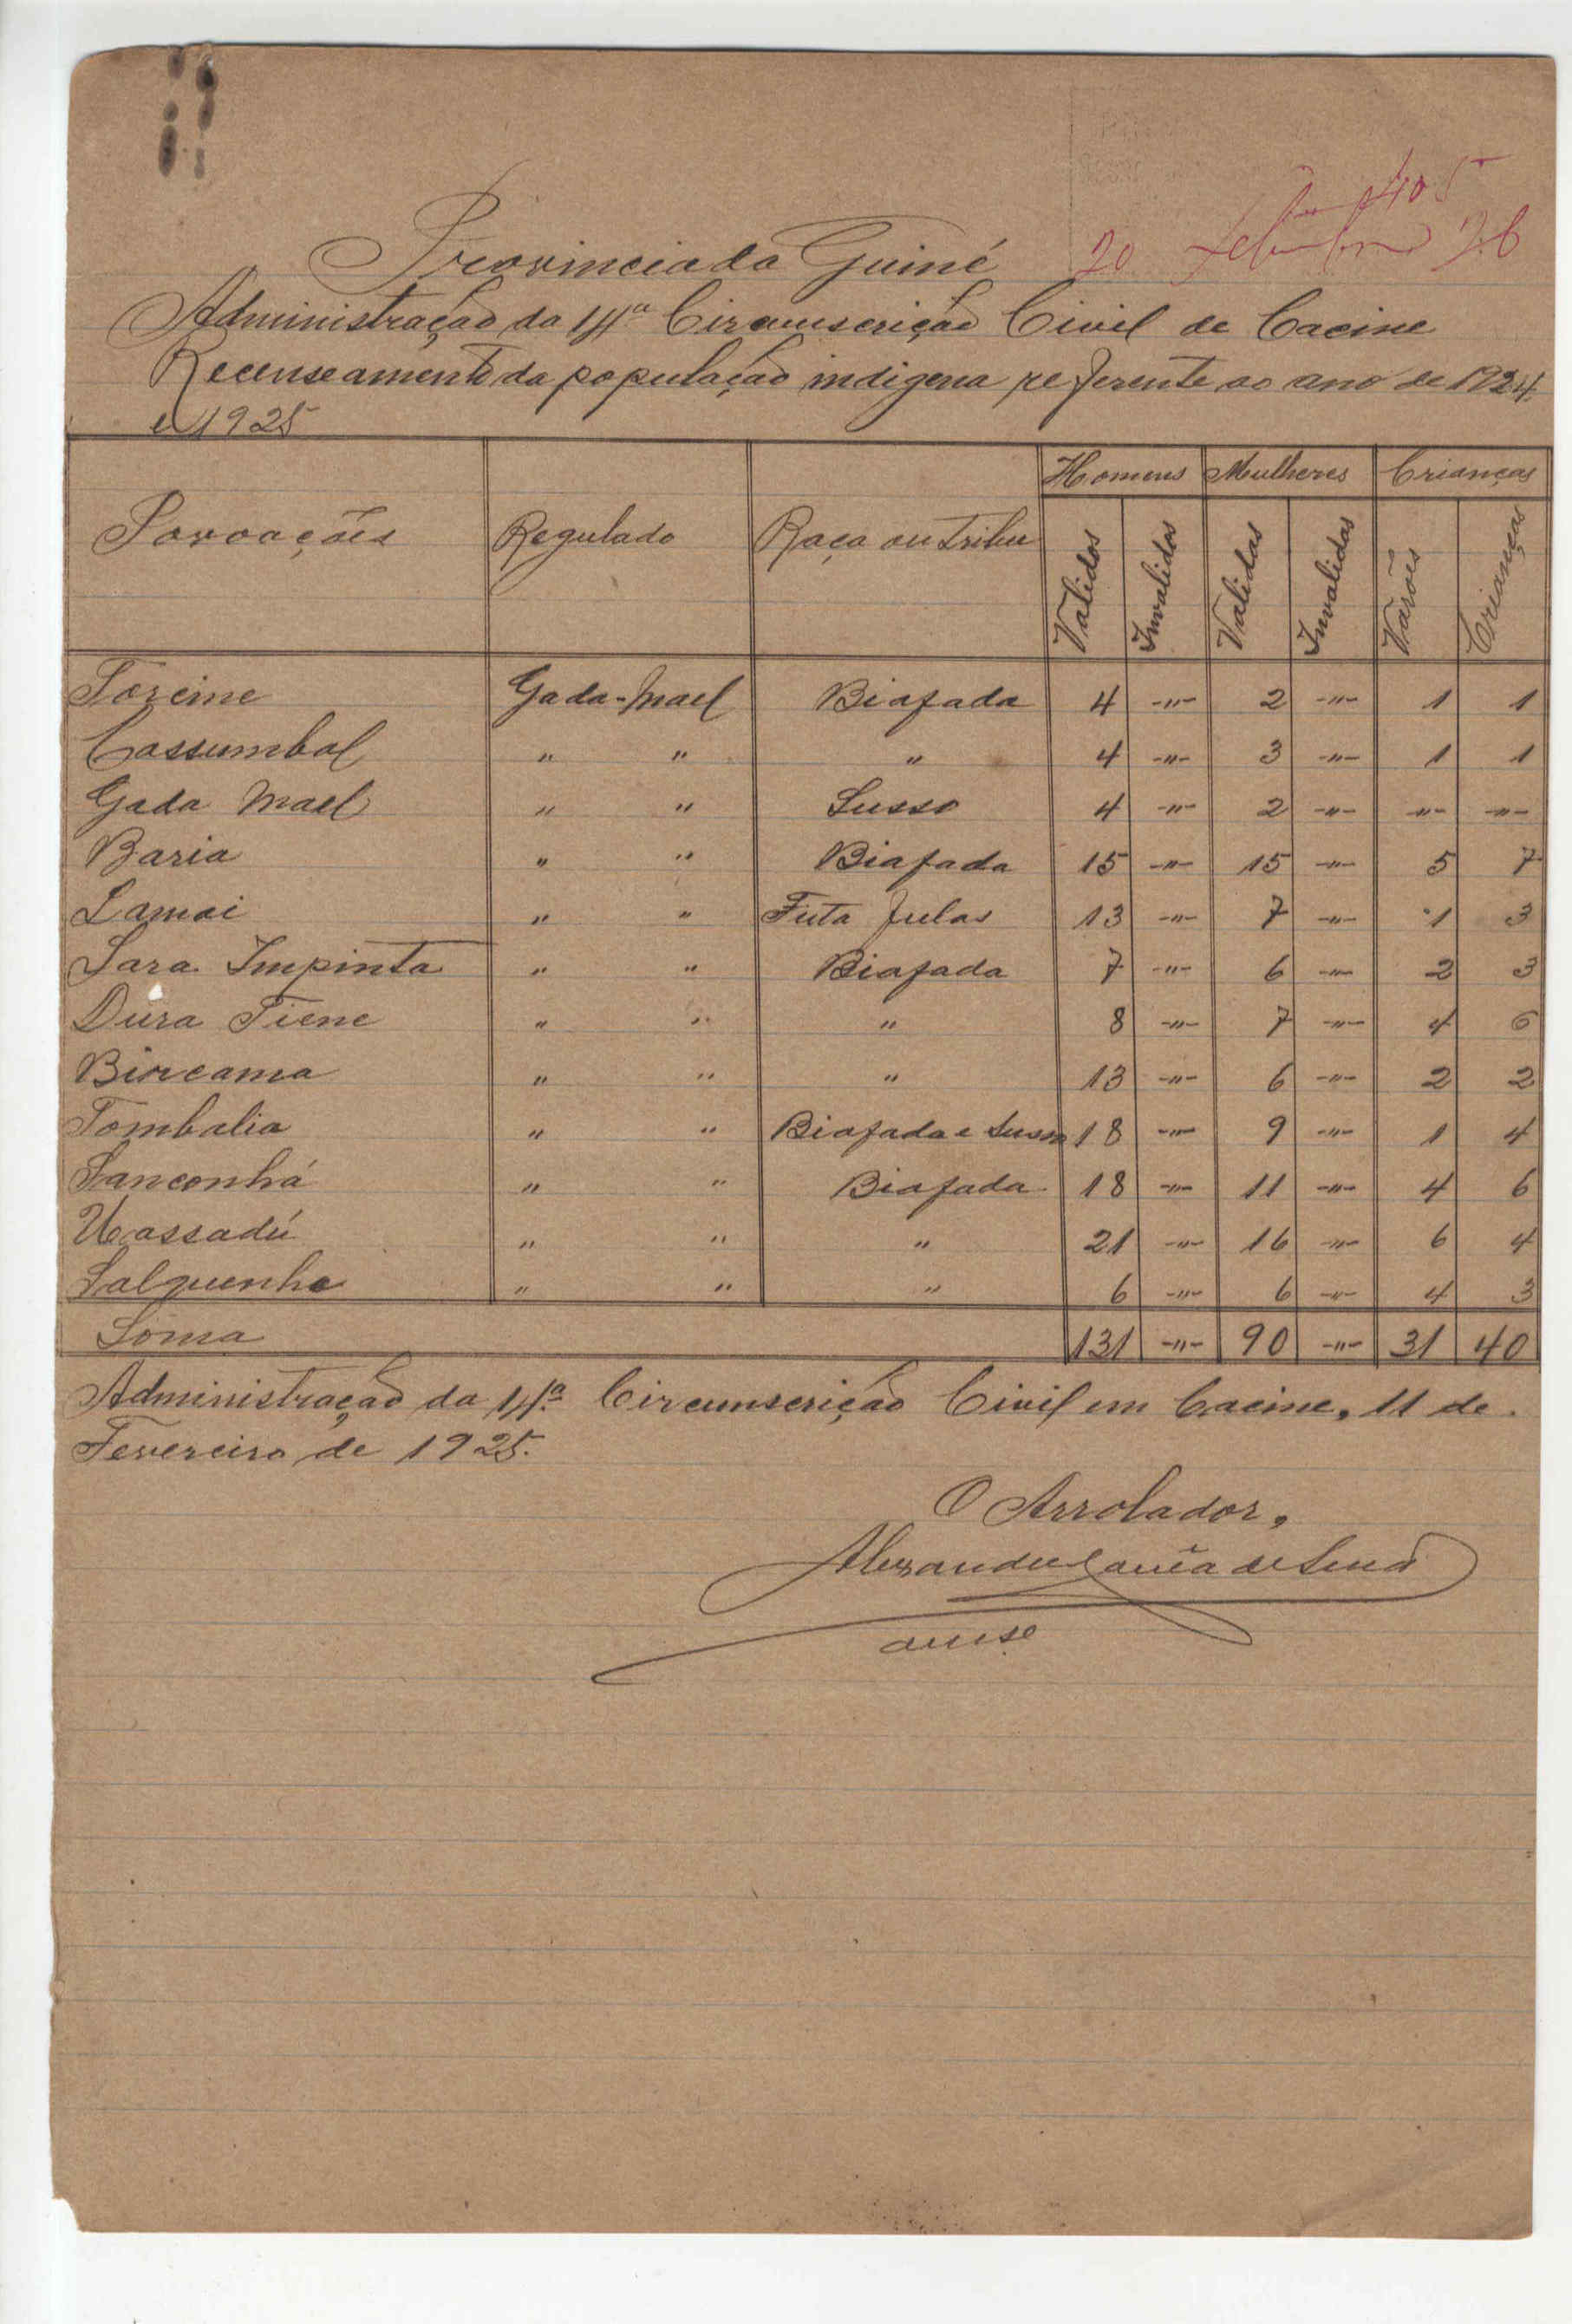 405
20 Setembro 26
Provincia da Guiné
Administração da 14ª Circunscrição Civil de Cacine
Recenseamento da população indigena referente ao ano de 1924
e 1925
Povoações Regulado Raça ou tribu Homens Mulheres Crianças
Validos Invalidos Validas Invalidas Varões Crianças
Toreine Gada-Mael Biafada 4 -"- 2 -"- 1 1
Cassumbal " " " 4 -"- 3 -"- 1 1
Gada Mael " " Susso 4 -"- 2 -"- -"- -"-
Baria " " Biafada 15 -"- 15 -"- 5 7
Lamoi " " Futa fulas 13 -"- 7 -"- 1 3
Sara Impinta " " Biafada 7 -"- 6 -"- 2 3
Dura Tiene " " " 8 -"- 7 -"- 4 6
Bircama " " " 13 -"- 6 -"- 2 2
Tombalia " " Biafada e Susso 18 -"- 9 -"- 1 4
Sanconhá " " Biafada 18 -"- 11 -"- 4 6
Uassadú " " " 21 -"- 16 -"- 6 4
Salquenhe " " " 6 -"- 6 -"- 4 3
Soma 131 -"- 90 -"- 31 40
Administração da 14ª Circumscrição Civil em Cacine, 11 de
Fevereiro de 1925.
O Arrolador,
Alexandre de Sena